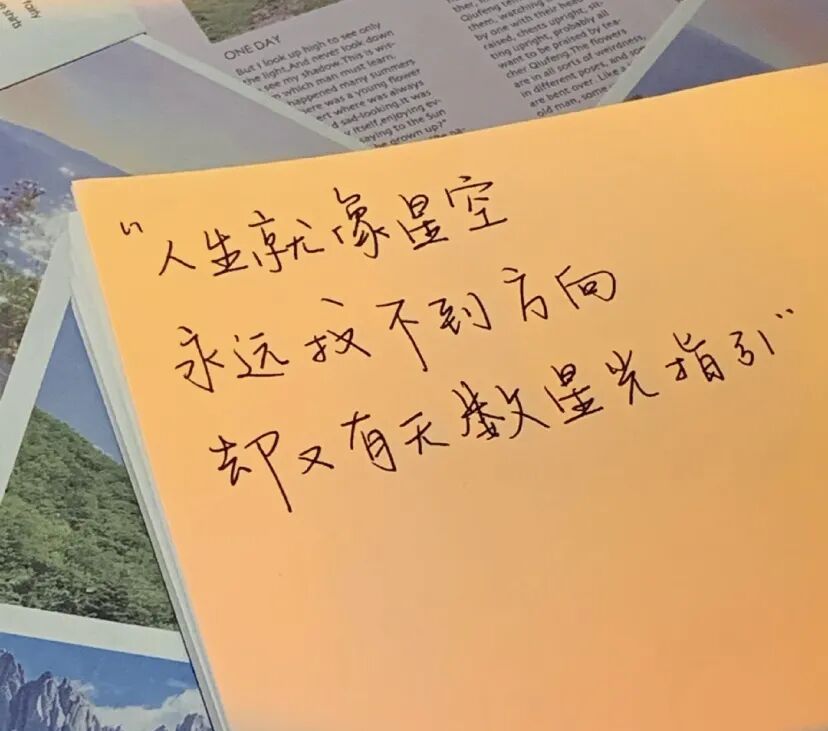 fairly
e shirts
ONE DAY
But I look up high to see only
the light, And never look down
see my shadow. This is wis-
which man must learn.
happened many summers
ere was a young flower
ert where was always
sad-looking. It was
itself, enjoying ev-
saying to the Sun
be grown up?"
Qiufeng
them, watching
by one with their hea
raised, chests upright, sit-
ting upright, probably all
want to be praised by tea-
cher Qiufeng. The flowers
are in all sorts of weirdness,
in different poses, and
are bent over. Like a
old man, some
“人生就像星空
永远找不到方向
却又有天数星光指引”